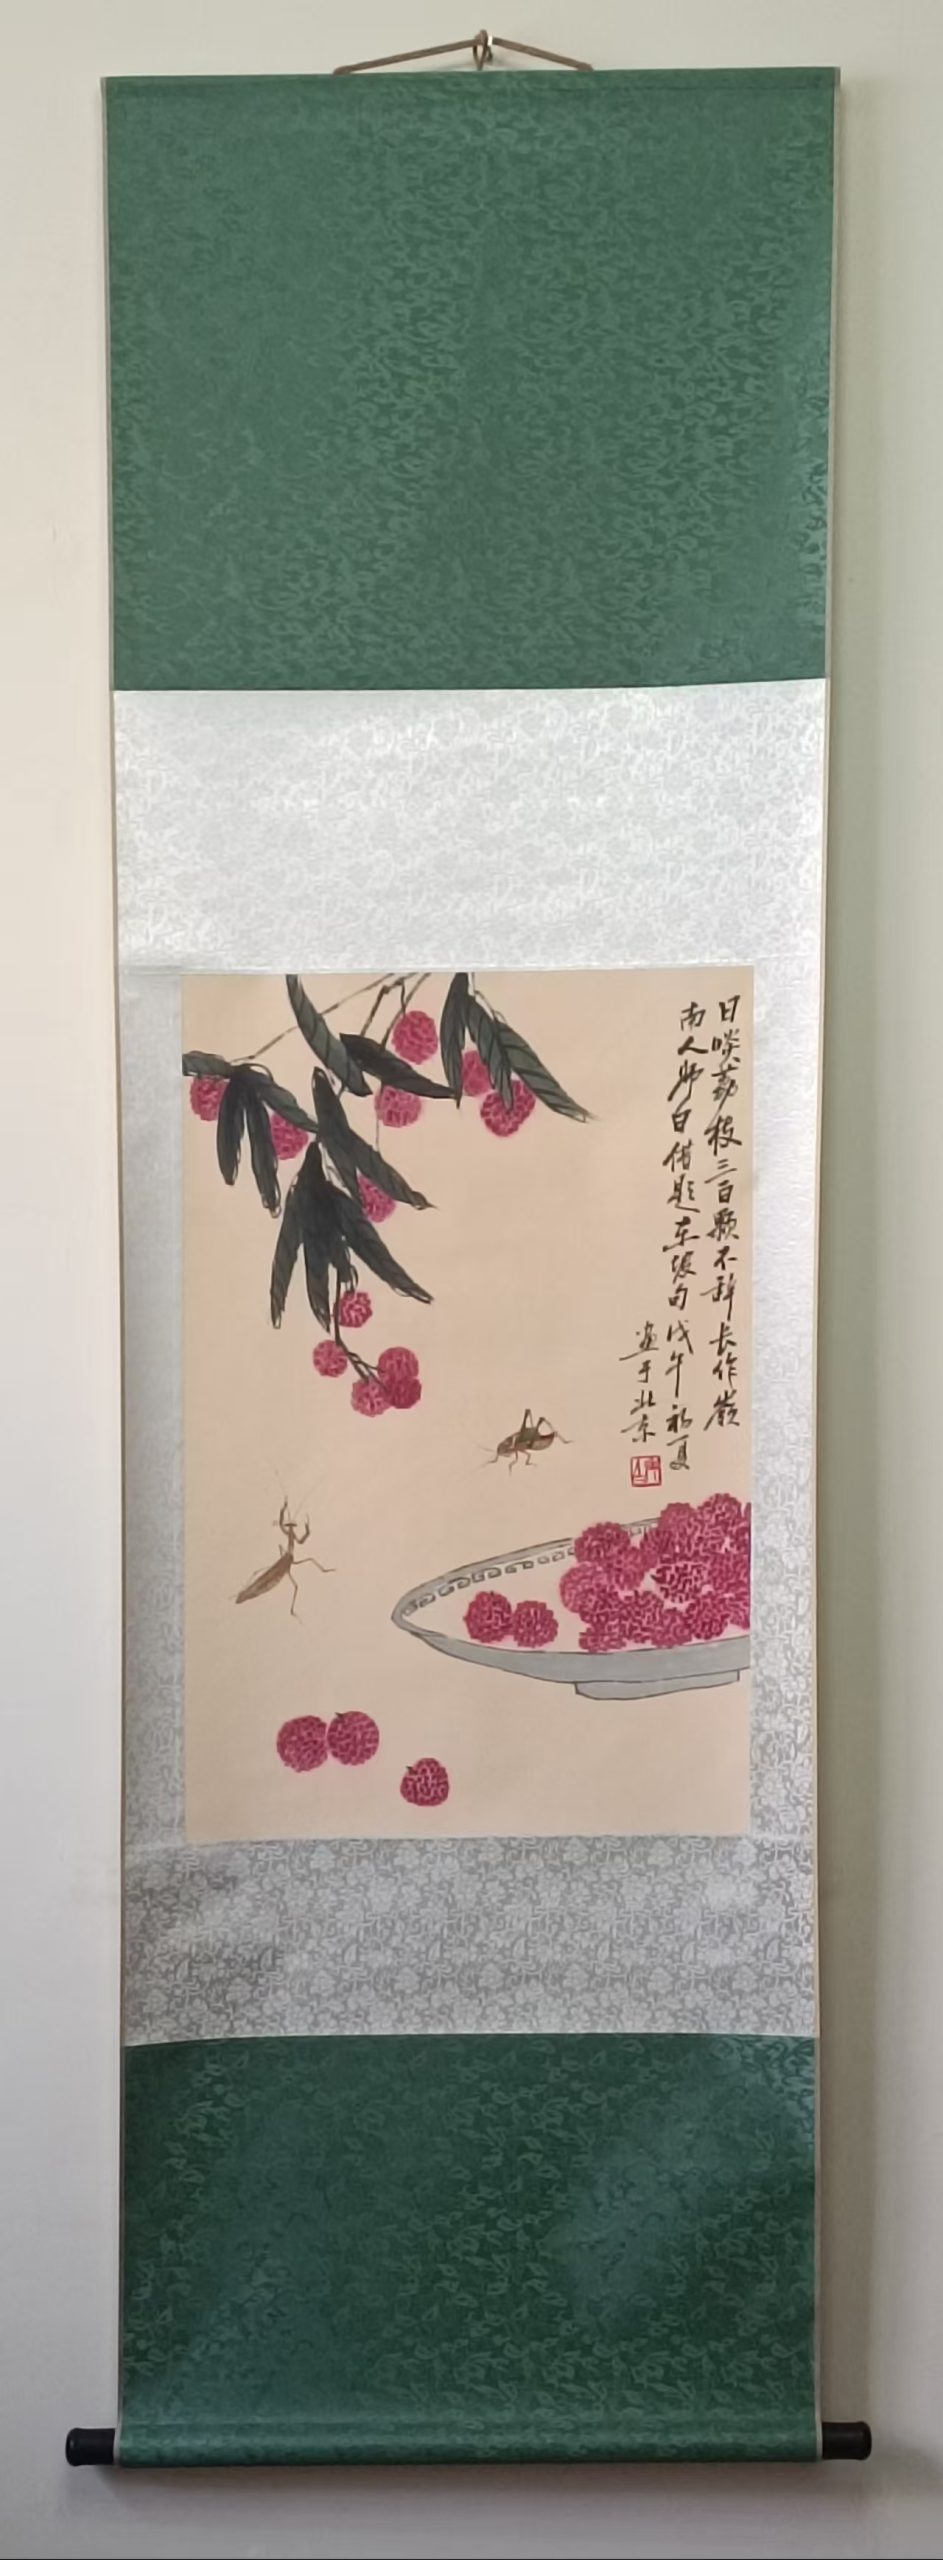 日啖荔枝三百颗不辞长作岭
南人师白借题东坡句戊午初夏
画于北京